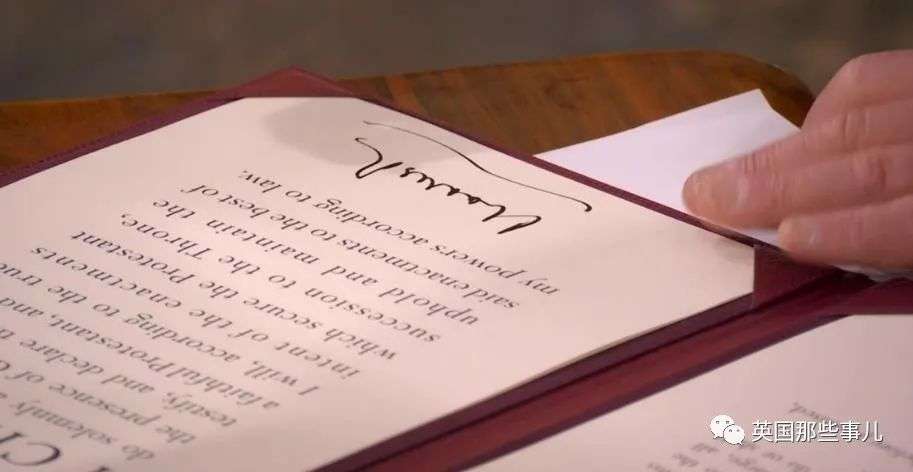 do solemnly a
the presence of G
testify, and declare
a faithful Protestant, and
I will, according to the true
intent of the enactments
which secure the Protestant
succession to the Throne,
uphold and maintain the
said enactments to the best of
my powers according to law.
Charles R
英国那些事儿